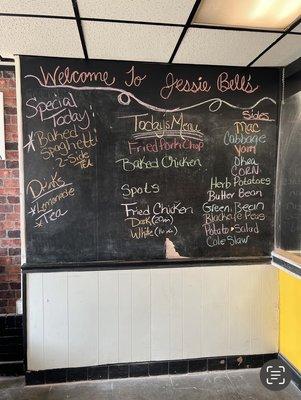 Welcome To Jessie Bell's
Special
Today!
Baked
Spaghetti
2-Side
Drinks
Lemonade
Tea
Today's Menu
Fried Pork Chop
Baked Chicken
Spots
Fried Chicken
Dark
White
Sides
Mac
Cabbage
Yam
Okra
CORN
Herb Potatoes
Butter Bean
Green Bean
Blackeye Peas
Potato Salad
Cole Slaw